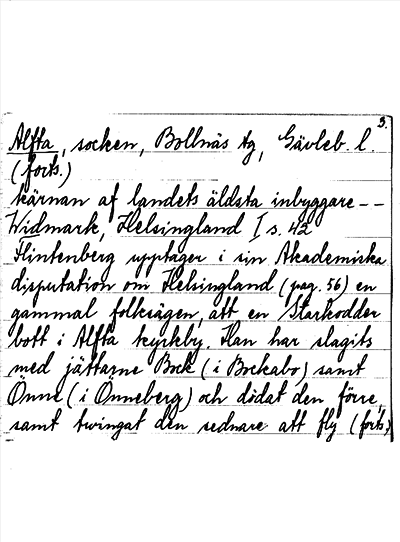 3.
Alfta, socken, Bollnäs tg, Gävleb. l.
(forts.)
kärnan af landets äldsta inbyggare --
Widmark, Helsingland I s. 42
Flintenberg upptager i sin Akademiska
disputation om Helsingland (pag. 56) en
gammal folksägen, att en Starkodder
bott i Alfta kyrkby. Han har slagits
med jättarne Bock (i Bockabo) samt
Önne (i Önneberg) och dödat den förre,
samt tvingat den sednare att fly (forts.)